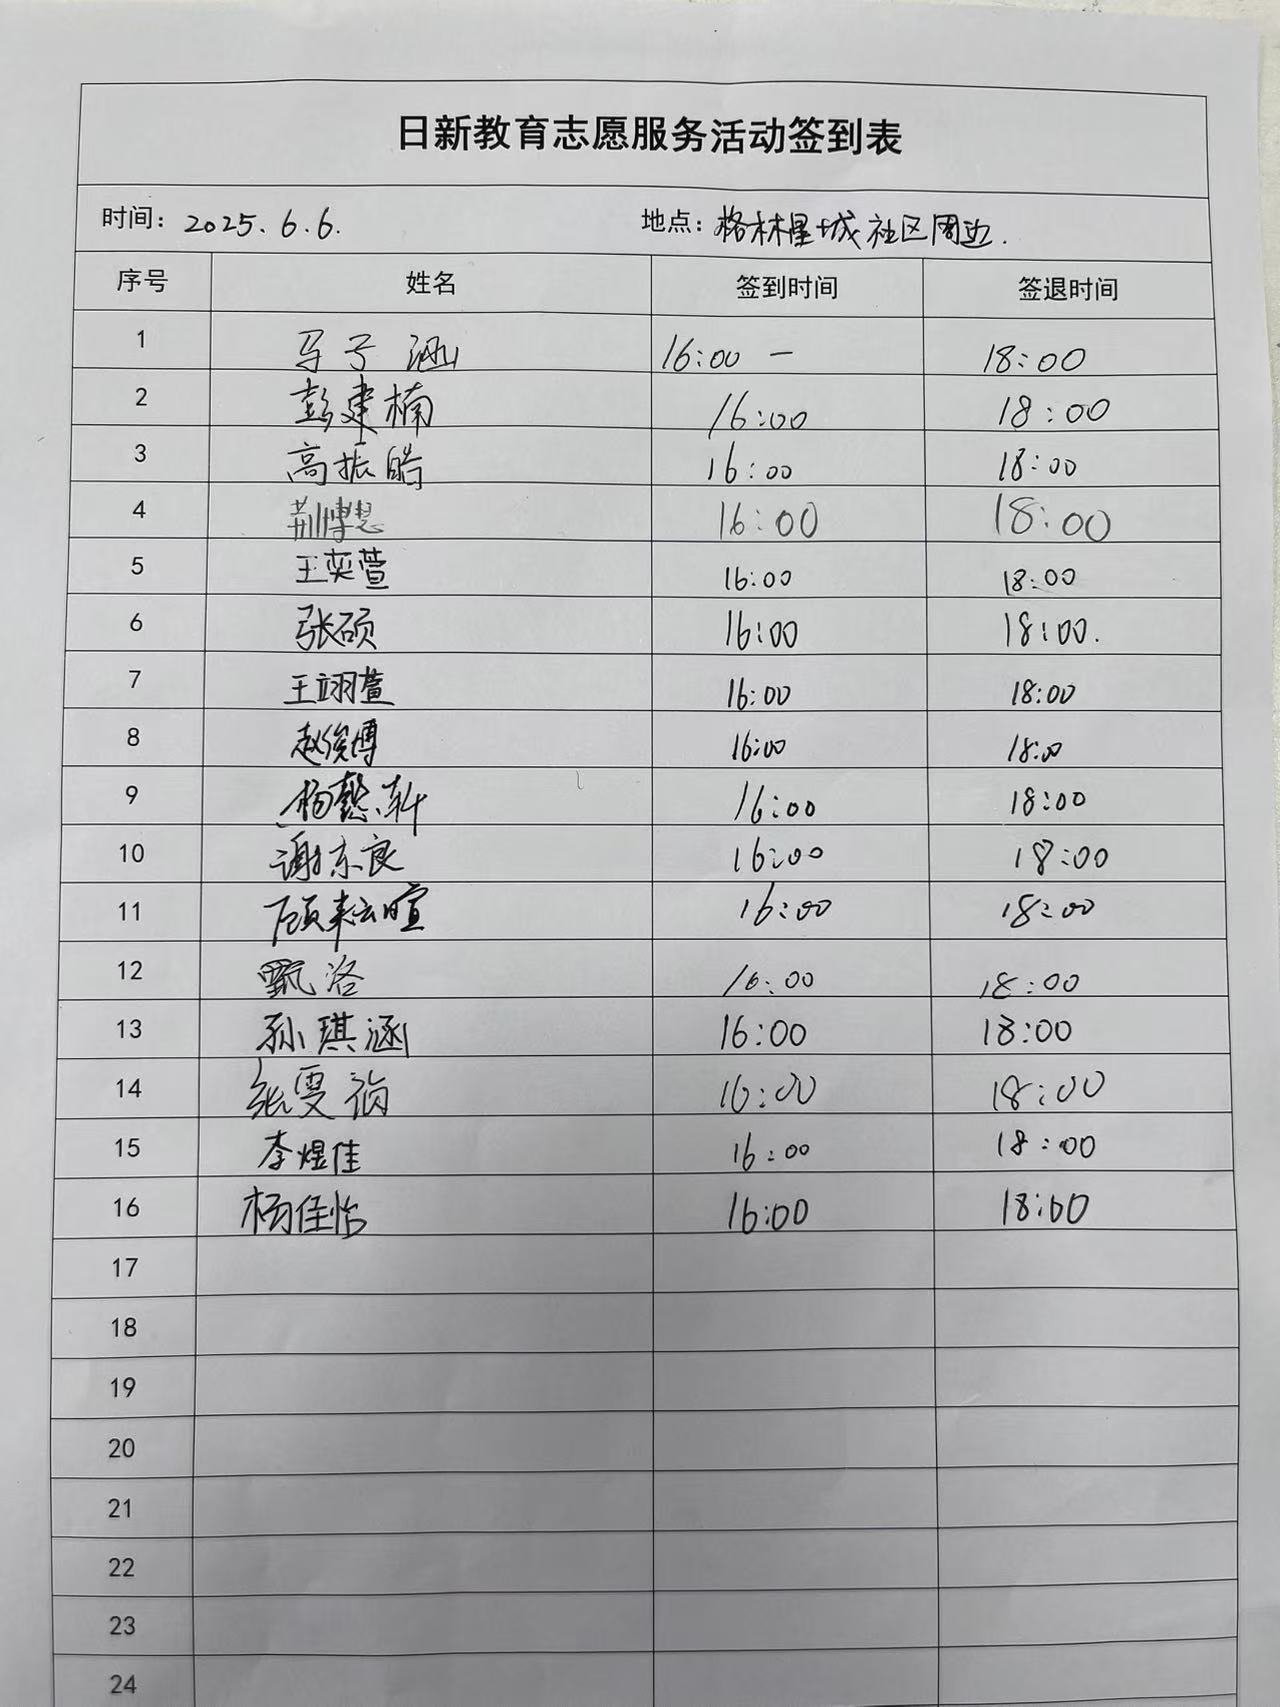 日新教育志愿服务活动签到表
时间：2025.6.6. 地点：格林星城社区周边.
序号 姓名 签到时间 签退时间
1 马子涵 16:00 — 18:00
2 彭建楠 16:00 18:00
3 高振皓 16:00 18:00
4 荆博 16:00 18:00
5 王奕萱 16:00 18:00
6 张硕 16:00 18:00.
7 王翊萱 16:00 18:00
8 赵俊博 16:00 18:00
9 杨懿轩 16:00 18:00
10 谢东良 16:00 18:00
11 顾耘暄 16:00 18:00
12 甄洛 16:00 18:00
13 孙琪涵 16:00 18:00
14 张雯 16:00 18:00
15 李煜佳 16:00 18:00
16 杨佳怡 16:00 18:00
17
18
19
20
21
22
23
24